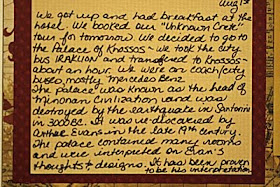 Aug 1st
We got up and had breakfast at the
hotel. We booked our "Unknown Crete"
tour for tomorrow. We decided to go to
the Palace of Knossos - we took the city
bus IRAKLION and transfered to Knossos -
about an hour. We were on coach/city
buses, mostly Mercedes Benz.
The palace was known as the head of
Minonan Civilization and was
destroyed by the earthquake in Santorini
in 3000BC. It was re-discovered by
Arthur Evans in the late 19th century.
The palace contained many rooms
and were interpreted on Evans's
thoughts & designs. It has been proven
to be his interpretation